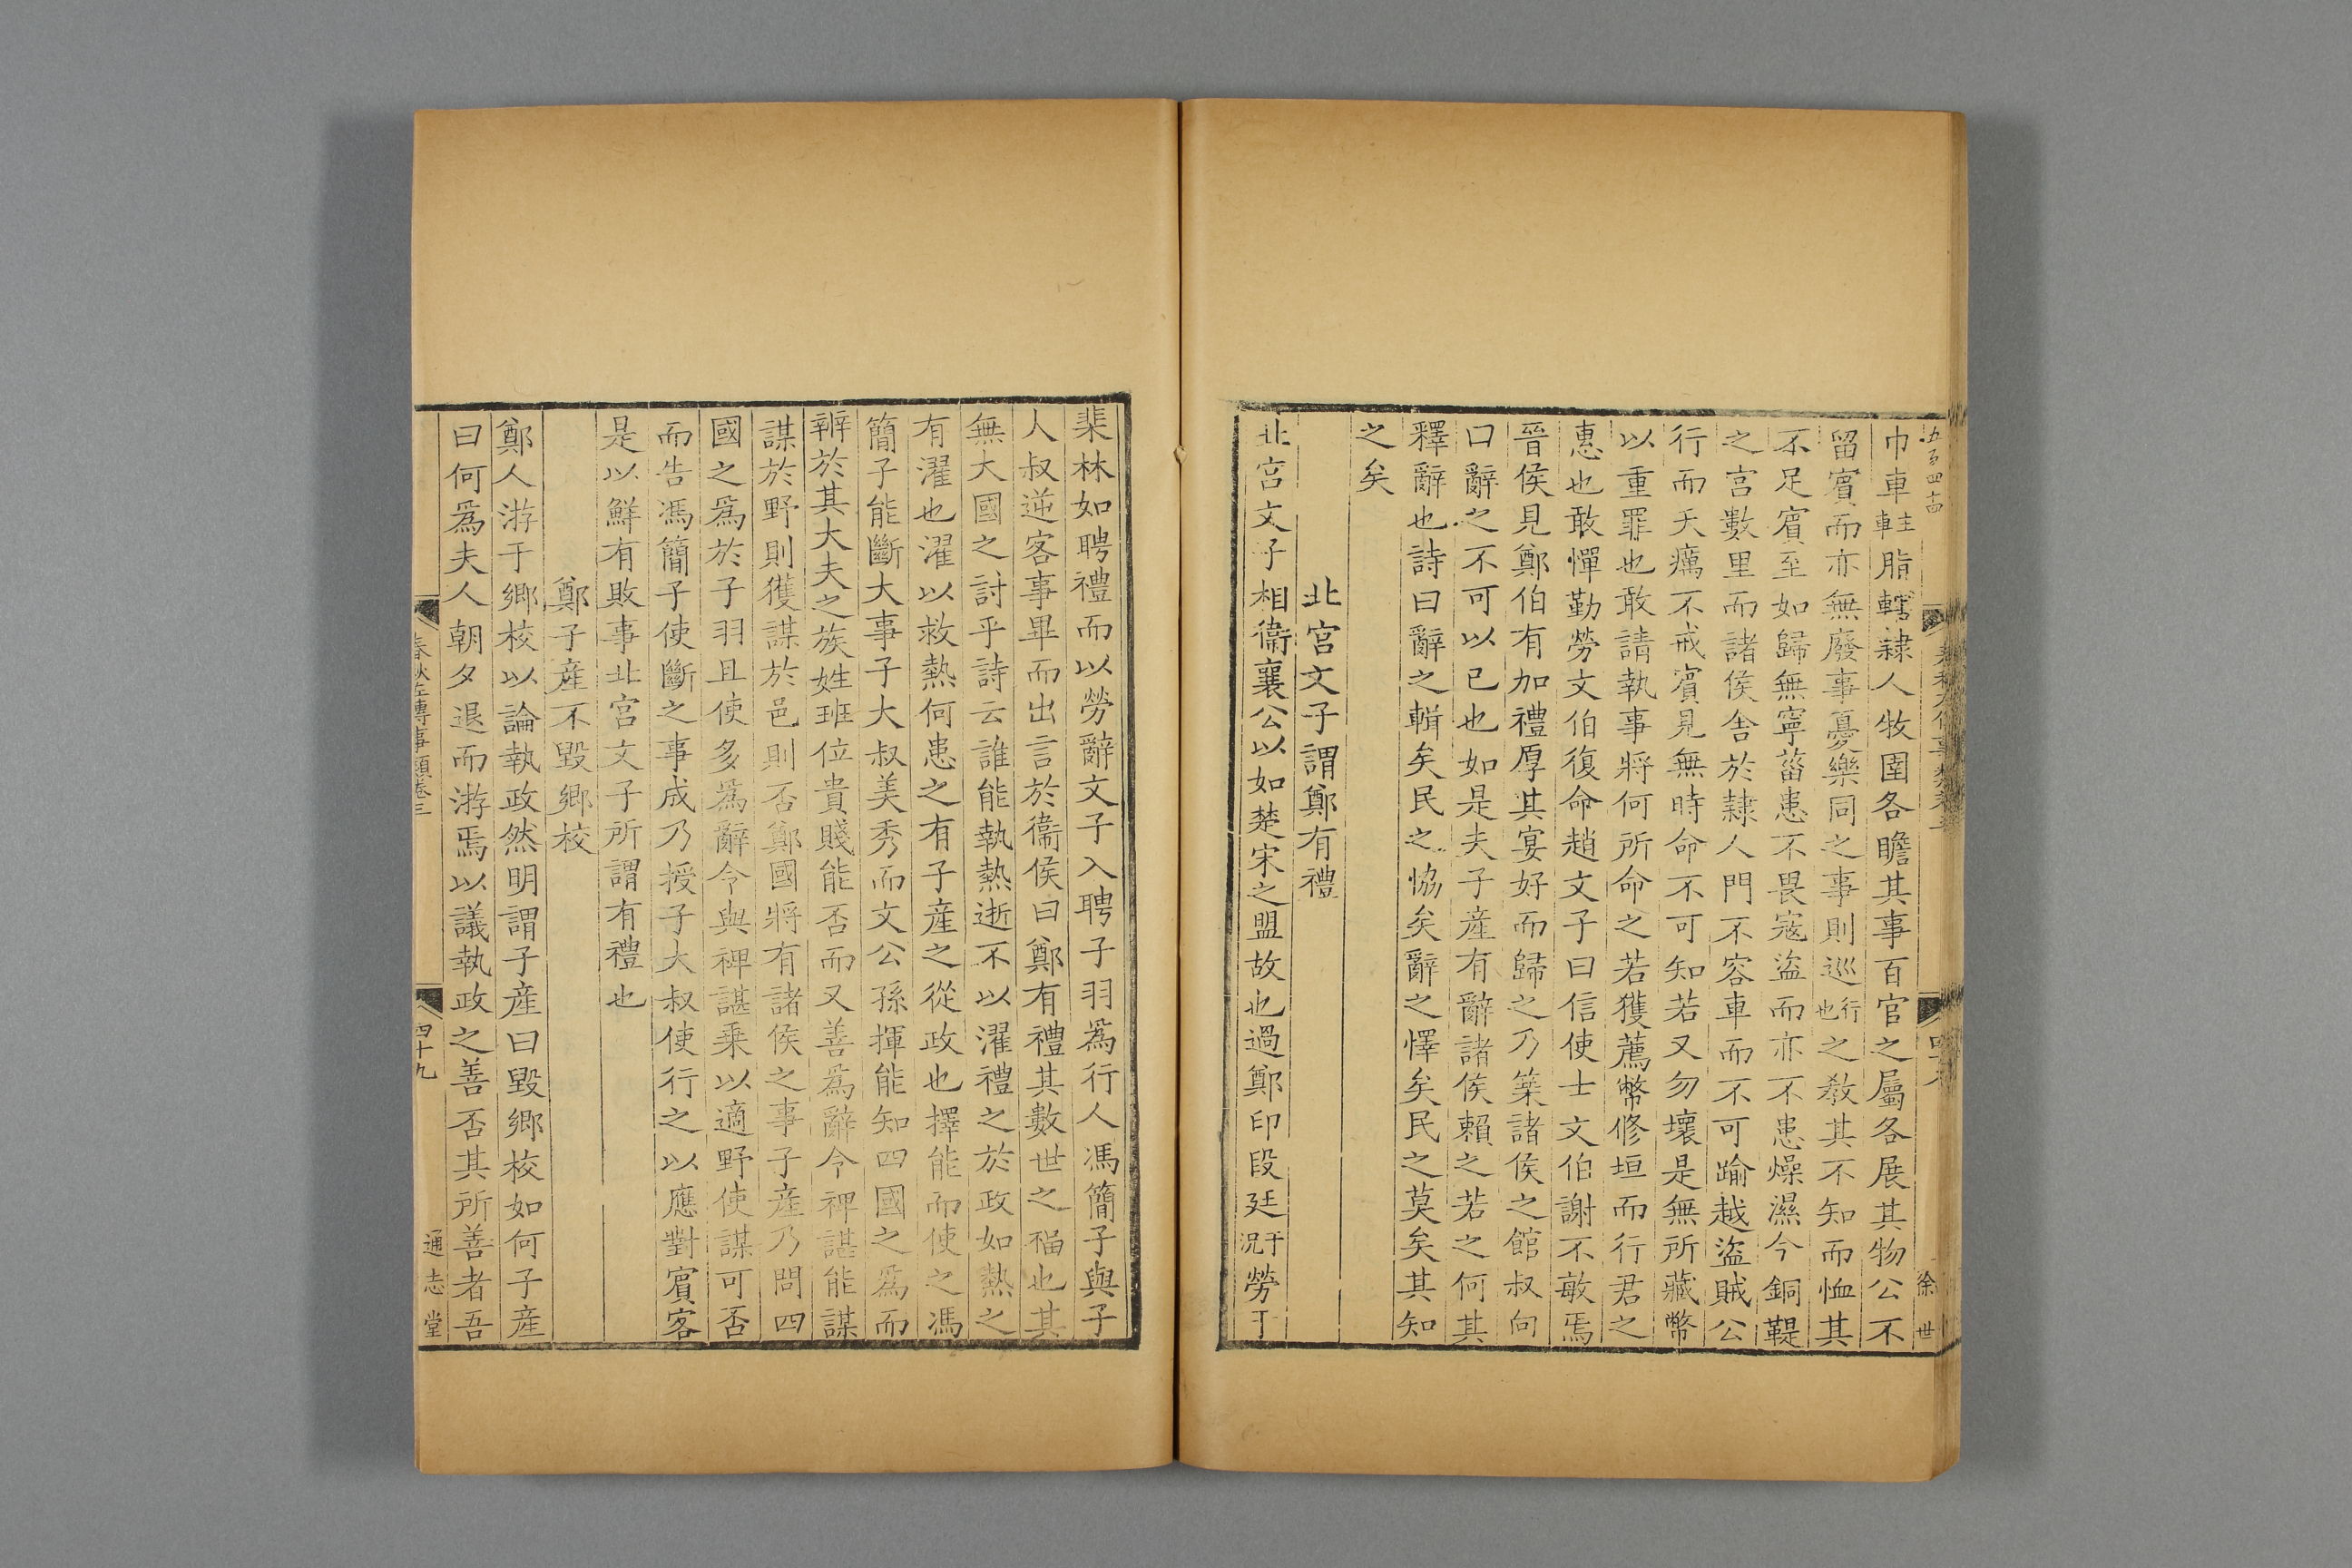 五百四十四
徐世
巾車主車脂轄隷人牧圉各瞻其事百官之屬各展其物公不
留賓而亦無廢事憂樂同之事則巡行也之教其不知而恤其
不足賓至如歸無寧菑患不畏寇盜而亦不患燥濕今銅鞮
之宮數里而諸侯舎於隷人門不容車而不可踰越盜賊公
行而夭癘不戒賓見無時命不可知若又勿壞是無所藏幣
以重罪也敢請執事將何所命之若獲薦幣修垣而行君之
惠也敢憚勤勞文伯復命趙文子曰信使士文伯謝不敏焉
晉侯見鄭伯有加禮厚其宴好而歸之乃築諸侯之館叔向
曰辭之不可以已也如是夫子産有辭諸侯賴之若之何其
釋辭也詩曰辭之輯矣民之恊矣辭之懌矣民之莫矣其知
之矣
北宮文子謂鄭有禮
北宮文子相衞襄公以如楚宋之盟故也過鄭印段廷于況勞于
棐林如聘禮而以勞辭文子入聘子羽爲行人馮簡子與子
人叔逆客事畢而出言於衞侯曰鄭有禮其數世之福也其
無大國之討乎詩云誰能執熱逝不以濯禮之於政如熱之
有濯也濯以救熱何患之有子産之從政也擇能而使之馮
簡子能斷大事子大叔美秀而文公孫揮能知四國之爲而
辨於其大夫之族姓班位貴賤能否而又善爲辭令裨諶能謀
謀於野則獲謀於邑則否鄭國將有諸侯之事子産乃問四
國之爲於子羽且使多爲辭令與裨諶乗以適野使謀可否
而告馮簡子使斷之事成乃授子大叔使行之以應對賓客
是以鮮有敗事北宮文子所謂有禮也
鄭子産不毀鄉校
鄭人游于鄉校以論執政然明謂子産曰毀鄉校如何子産
曰何爲夫人朝夕退而游焉以議執政之善否其所善者吾
春秋左傳事類卷三
四十九
通志堂